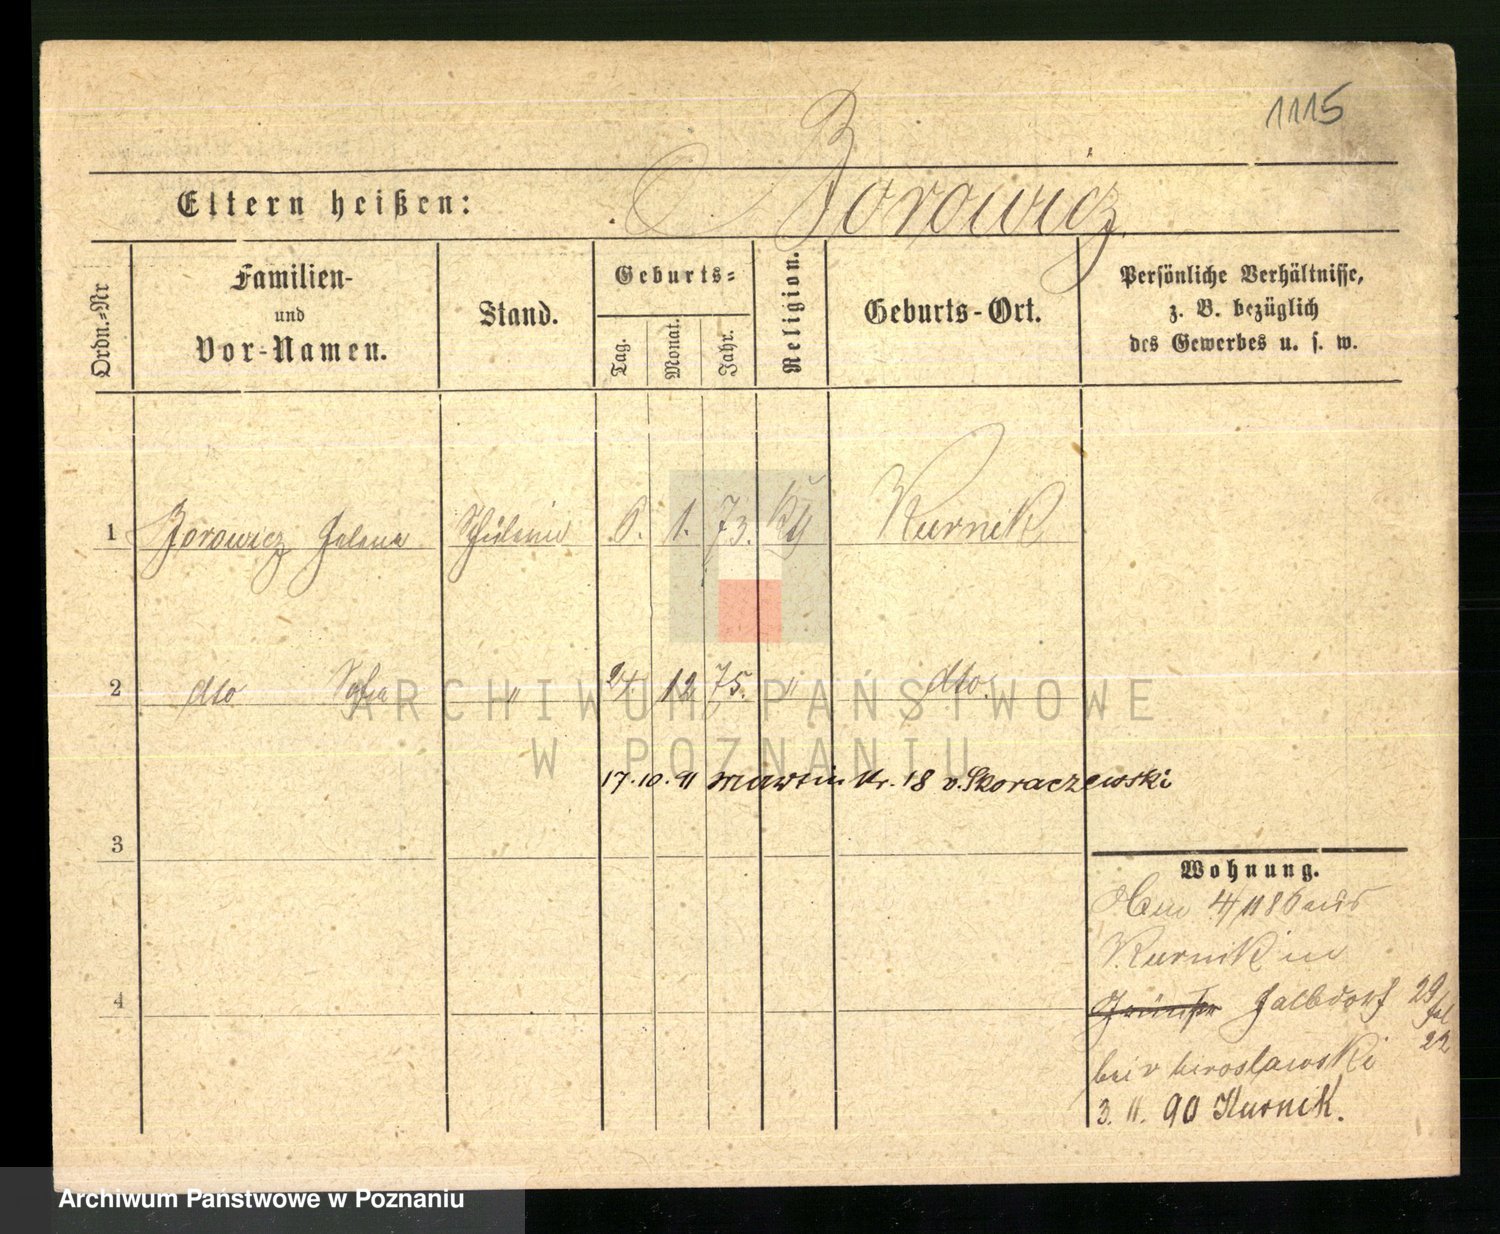 1115
Eltern heißen: Borowicz.
Ordn.=Nr
Familien-
und
Vor-Namen.
Stand.
Geburts=
Tag.
Monat.
Jahr.
Religion.
Geburts-Ort.
Persönliche Verhältnisse,
z. B. bezüglich
des Gewerbes u. s. w.
1 Borowicz Helena Schülerin 6. 1. 73. Kurnik
2 dto Sofia " 24. 12 75. " dto.
ARCHIWUM PAŃSTWOWE
W POZNANIU
17.10.91 Martin Nr. 18 v. Skoraczewski
3
Wohnung.
4/11 86 aus
Kurnik in
Halbdorf 29
bei v
22
3. 11. 90 Kurnik.
4
Archiwum Państwowe w Poznaniu